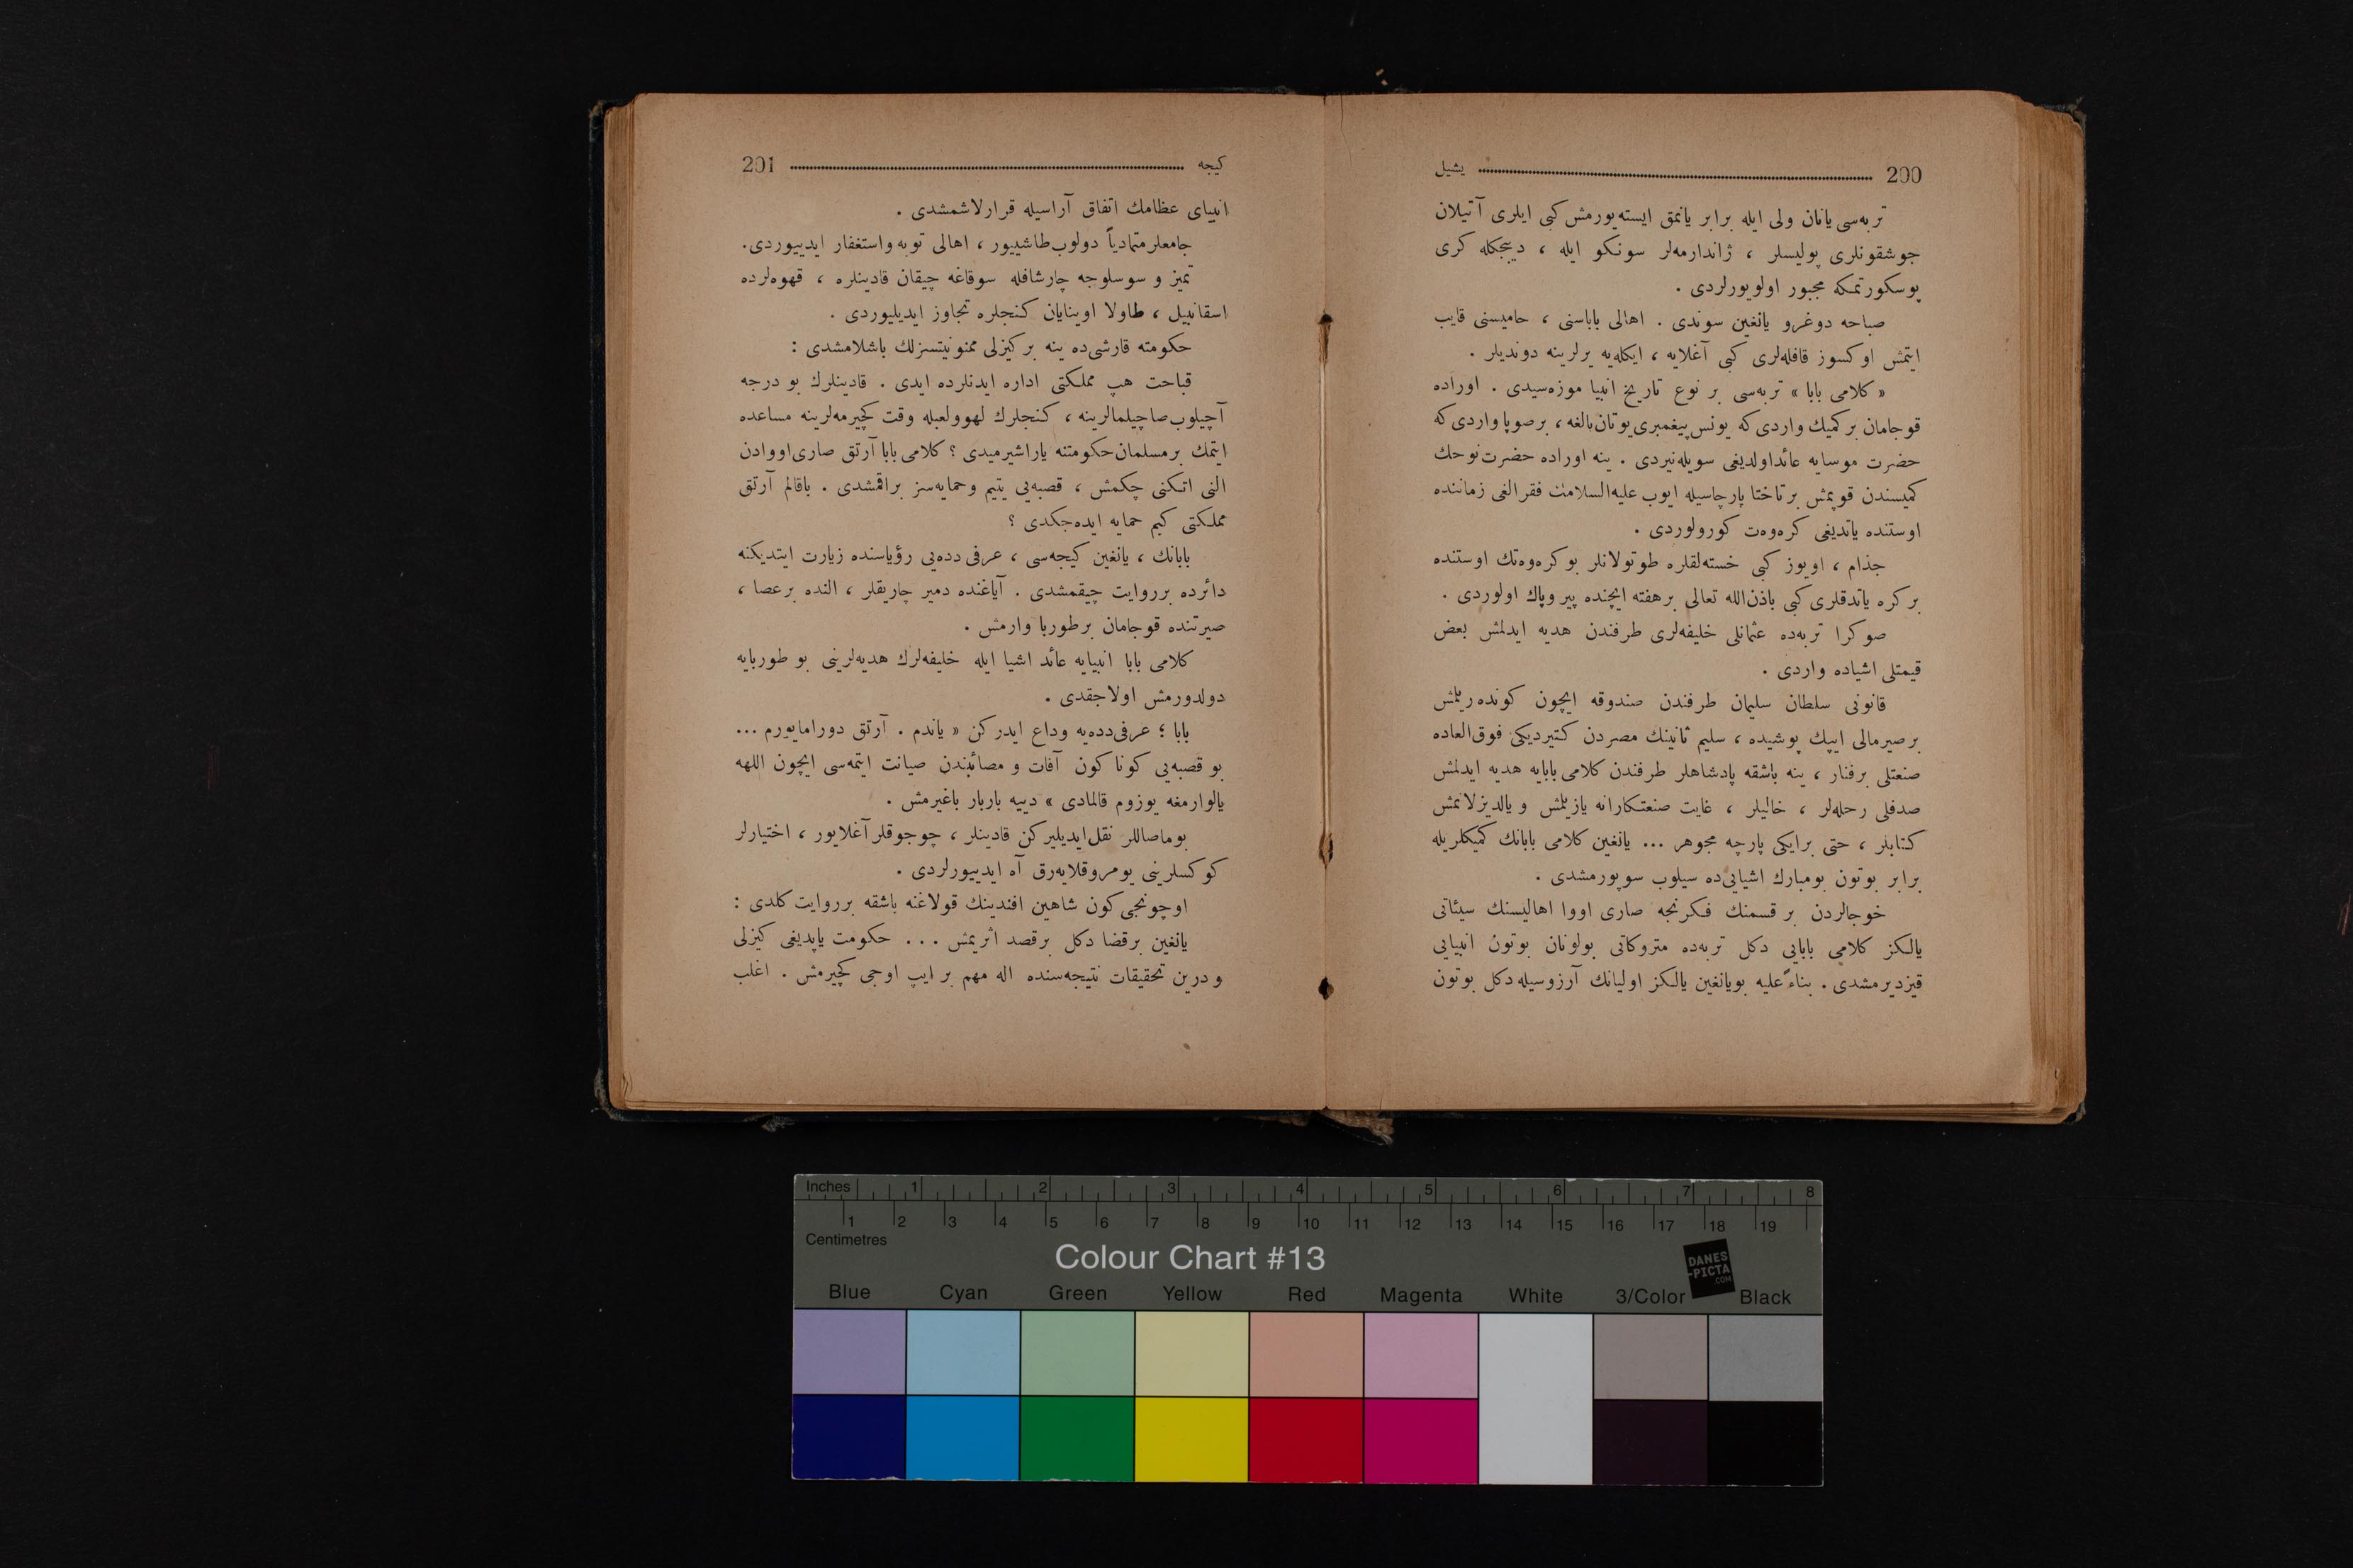 200 یشیل
تربه‌سی یانان ولی ایله برابر یانمق ایسته‌یورمش کبی ایلری آتیلان
جوشقونلری پولیسلر ، ژاندارمه‌لر سونکو ایله ، دیپجکله کری
پوسکورتمکه مجبور اولویورلردی .
صباحه دوغرو یانغین سوندی . اهالی باباسنی ، حامیسنی قایب
ایتمش اوکسوز قافله‌لری کبی آغلایه ، ایکله‌یه یرلرینه دوندیلر .
« کلامی بابا » تربه‌سی بر نوع تاریخ انبیا موزه‌سیدی . اوراده
قوجامان بر کمیك واردی که یونس پیغمبری یوتان بالغه ، بر صوپا واردی که
حضرت موسایه عائد اولدیغی سویله‌نیردی . ینه اوراده حضرت نوحك
کمیسندن قوپمش بر تاختا پارچاسیله ایوب علیه‌السلامك فقرالغی زماننده
اوستنده یاتدیغی کره‌وه‌ت کورولوردی .
جذام ، اویوز کبی خسته‌لقلره طوتولانلر بو کره‌وه‌تك اوستنده
بر کره یاتدقلری کبی باذن‌الله تعالی بر هفته ایچنده پیر وپاك اولوردی .
صوکرا تربه‌ده عثمانلی خلیفه‌لری طرفندن هدیه ایدلمش بعض
قیمتلی اشیاده واردی .
قانونی سلطان سلیمان طرفندن صندوقه ایچون کونده‌ریلمش
بر صیرمالی ایپك پوشیده ، سلیم ثانینك مصردن کتیردیکی فوق‌العاده
صنعتلی بر فنار ، ینه باشقه پادشاهلر طرفندن کلامی بابایه هدیه ایدلمش
صدفلی رحله‌لر ، خالیلر ، غایت صنعتکارانه یازیلمش و یالدیزلانمش
کتابلر ، حتی بر ایکی پارچه مجوهر ... یانغین کلامی بابانك کمیکلریله
برابر بوتون بومبارك اشیایی‌ده سیلوب سوپورمشدی .
خوجالردن بر قسمنك فکرنجه صاری اووا اهالیسنك سیئاتی
یالکز کلامی بابایی دکل تربه‌ده متروکاتی بولونان بوتون انبیایی
قیزدیرمشدی . بناءً علیه بویانغین یالکز اولیانك آرزوسیله دکل بوتون
کیجه 201
انبیای عظامك اتفاق آراسیله قرارلاشمشدی .
جامعلر متمادیاً دولوب طاشییور ، اهالی توبه واستغفار ایدییوردی.
تمیز و سوسلوجه چارشافله سوقاغه چیقان قادینلره ، قهوه‌لرده
اسقانبیل ، طاولا اوینایان کنجلره تجاوز ایدیلیوردی .
حکومته قارشی‌ده ینه بر کیزلی ممنونیتسزلك باشلامشدی :
قباحت هپ مملکتی اداره ایدنلرده ایدی . قادینلرك بو درجه
آچیلوب صاچیلمالرینه ، کنجلرك لهوولعبله وقت کچیرمه‌لرینه مساعده
ایتمك بر مسلمان حکومتنه یاراشیرمیدی ؟ کلامی بابا آرتق صاری اووادن
النی اتکنی چکمش ، قصبه‌یی یتیم وحمایه‌سز براقمشدی . باقالم آرتق
مملکتی کیم حمایه ایده‌جکدی ؟
بابانك ، یانغین کیجه‌سی ، عرفی دده‌یی رؤیاسنده زیارت ایتدیکنه
دائرده برروایت چیقمشدی . آیاغنده دمیر چاریقلر ، النده بر عصا ،
صیرتنده قوجامان بر طوربا وارمش .
کلامی بابا انبیایه عائد اشیا ایله خلیفه‌لرك هدیه‌لرینی بو طوربایه
دولدورمش اولاجقدی .
بابا ؛ عرفی دده‌یه وداع ایدرکن « یاندم . آرتق دورامایورم ...
بو قصبه‌یی کوناکون آفات و مصائبندن صیانت ایتمه‌سی ایچون اللهه
یالوارمغه یوزوم قالمادی » دییه باربار باغیرمش .
بوماصاللر نقل ایدیلیرکن قادینلر ، چوجوقلر آغلایور ، اختیارلر
کوکسلرینی یومروقلایه‌رق آه ایدییورلردی .
اوچونجی کون شاهین افندینك قولاغنه باشقه برروایت کلدی :
یانغین برقضا دکل برقصد اثریمش ... حکومت یاپدیغی کیزلی
و درین تحقیقات نتیجه‌سنده اله مهم بر ایپ اوجی کچیرمش . اغلب
Inches 1 2 3 4 5 6 7 8
1 2 3 4 5 6 7 8 9 10 11 12 13 14 15 16 17 18 19
Centimetres
Colour Chart #13
DANES
-PICTA
.COM
Blue Cyan Green Yellow Red Magenta White 3/Color Black